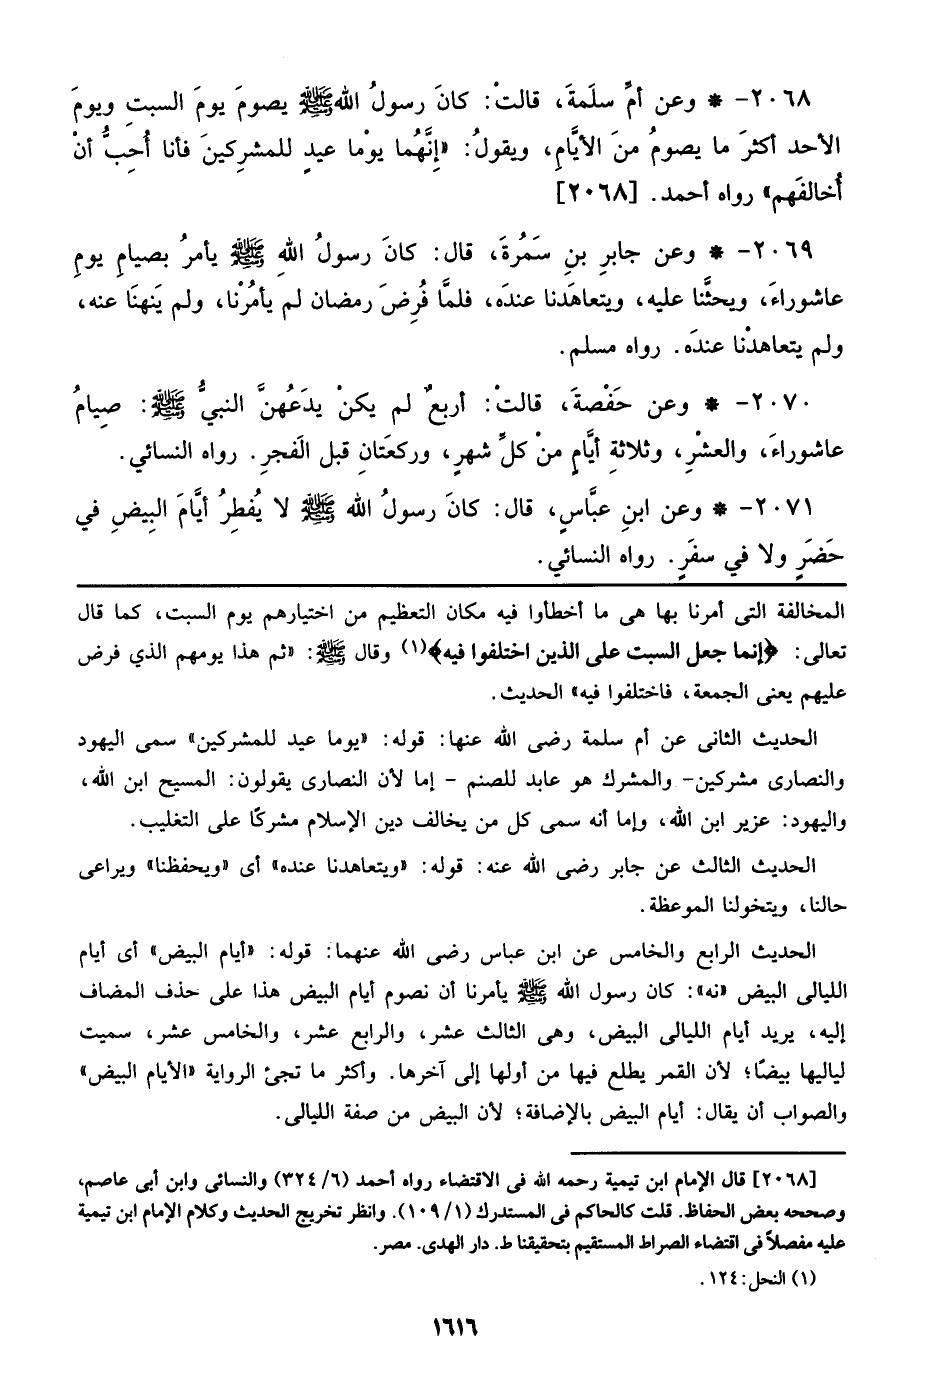 ٢٠٦٨- * وعن أمِّ سلَمةَ، قالتْ: كانَ رسولُ اللهﷺ يصومَ يومَ السبتِ ويومَ
الأحد أكثرَ ما يصومُ منَ الأيَّامِ، ويقولُ: «إنَّهُما يوْما عيدٍ للمشركينَ فأنا أُحِبُّ أنْ
أُخالفَهم» رواه أحمد. [٢٠٦٨]
٢٠٦٩- * وعن جابرِ بنِ سَمُرةَ، قال: كانَ رسولُ اللهِ ﷺ يأمرُ بصيامِ يومِ
عاشوراءَ، ويحثَّنا عليه، ويتعاهَدنا عندَه، فلمَّا فُرِضَ رمضان لم يأمُرْنا، ولم يَنهنَا عنه،
ولم يتعاهدْنا عندَه. رواه مسلم.
٢٠٧٠- * وعن حَفْصةَ، قالتْ: أربعٌ لم يكنْ يدَعُهنَّ النبيُّ ﷺ: صِيامُ
عاشوراءَ، والعشْرِ، وثلاثةِ أيَّامٍ منْ كلِّ شهرٍ، وركعَتانِ قبل الفَجرِ. رواه النسائي.
٢٠٧١- * وعن ابنِ عبَّاسٍ، قال: كانَ رسولُ الله ﷺ لا يُفطِرُ أيَّامَ البِيضِ في
حَضَرٍ ولا في سفَرٍ. رواه النسائي.
المخالفة التى أمرنا بها هى ما أخطأوا فيه مكان التعظيم من اختيارهم يوم السبت، كما قال
تعالى: ﴿إنما جعل السبت على الذين اختلفوا فيه﴾(١) وقال ﷺ: «ثم هذا يومهم الذي فرض
عليهم يعنى الجمعة، فاختلفوا فيه» الحديث.
الحديث الثانى عن أم سلمة رضى الله عنها: قوله: «يوما عيد للمشركين» سمى اليهود
والنصارى مشركين- والمشرك هو عابد للصنم - إما لأن النصارى يقولون: المسيح ابن الله،
واليهود: عزير ابن الله، وإما أنه سمى كل من يخالف دين الإسلام مشركًا على التغليب.
الحديث الثالث عن جابر رضى الله عنه: قوله: «ويتعاهدنا عنده» أى «ويحفظنا» ويراعى
حالنا، ويتخولنا الموعظة.
الحديث الرابع والخامس عن ابن عباس رضى الله عنهما: قوله: «أيام البيض» أى أيام
الليالى البيض «نه»: كان رسول الله ﷺ يأمرنا أن نصوم أيام البيض هذا على حذف المضاف
إليه، يريد أيام الليالى البيض، وهى الثالث عشر، والرابع عشر، والخامس عشر، سميت
لياليها بيضًا؛ لأن القمر يطلع فيها من أولها إلى آخرها. وأكثر ما تجئ الرواية «الأيام البيض»
والصواب أن يقال: أيام البيض بالإضافة؛ لأن البيض من صفة الليالى.
[٢٠٦٨] قال الإمام ابن تيمية رحمه الله فى الاقتضاء رواه أحمد (٣٢٤/٦) والنسائى وابن أبى عاصم،
وصححه بعض الحفاظ. قلت كالحاكم فى المستدرك (١٠٩/١). وانظر تخريج الحديث وكلام الإمام ابن تيمية
عليه مفصلاً فى اقتضاء الصراط المستقيم بتحقيقنا ط. دار الهدى. مصر.
(١) النحل: ١٢٤.
١٦١٦